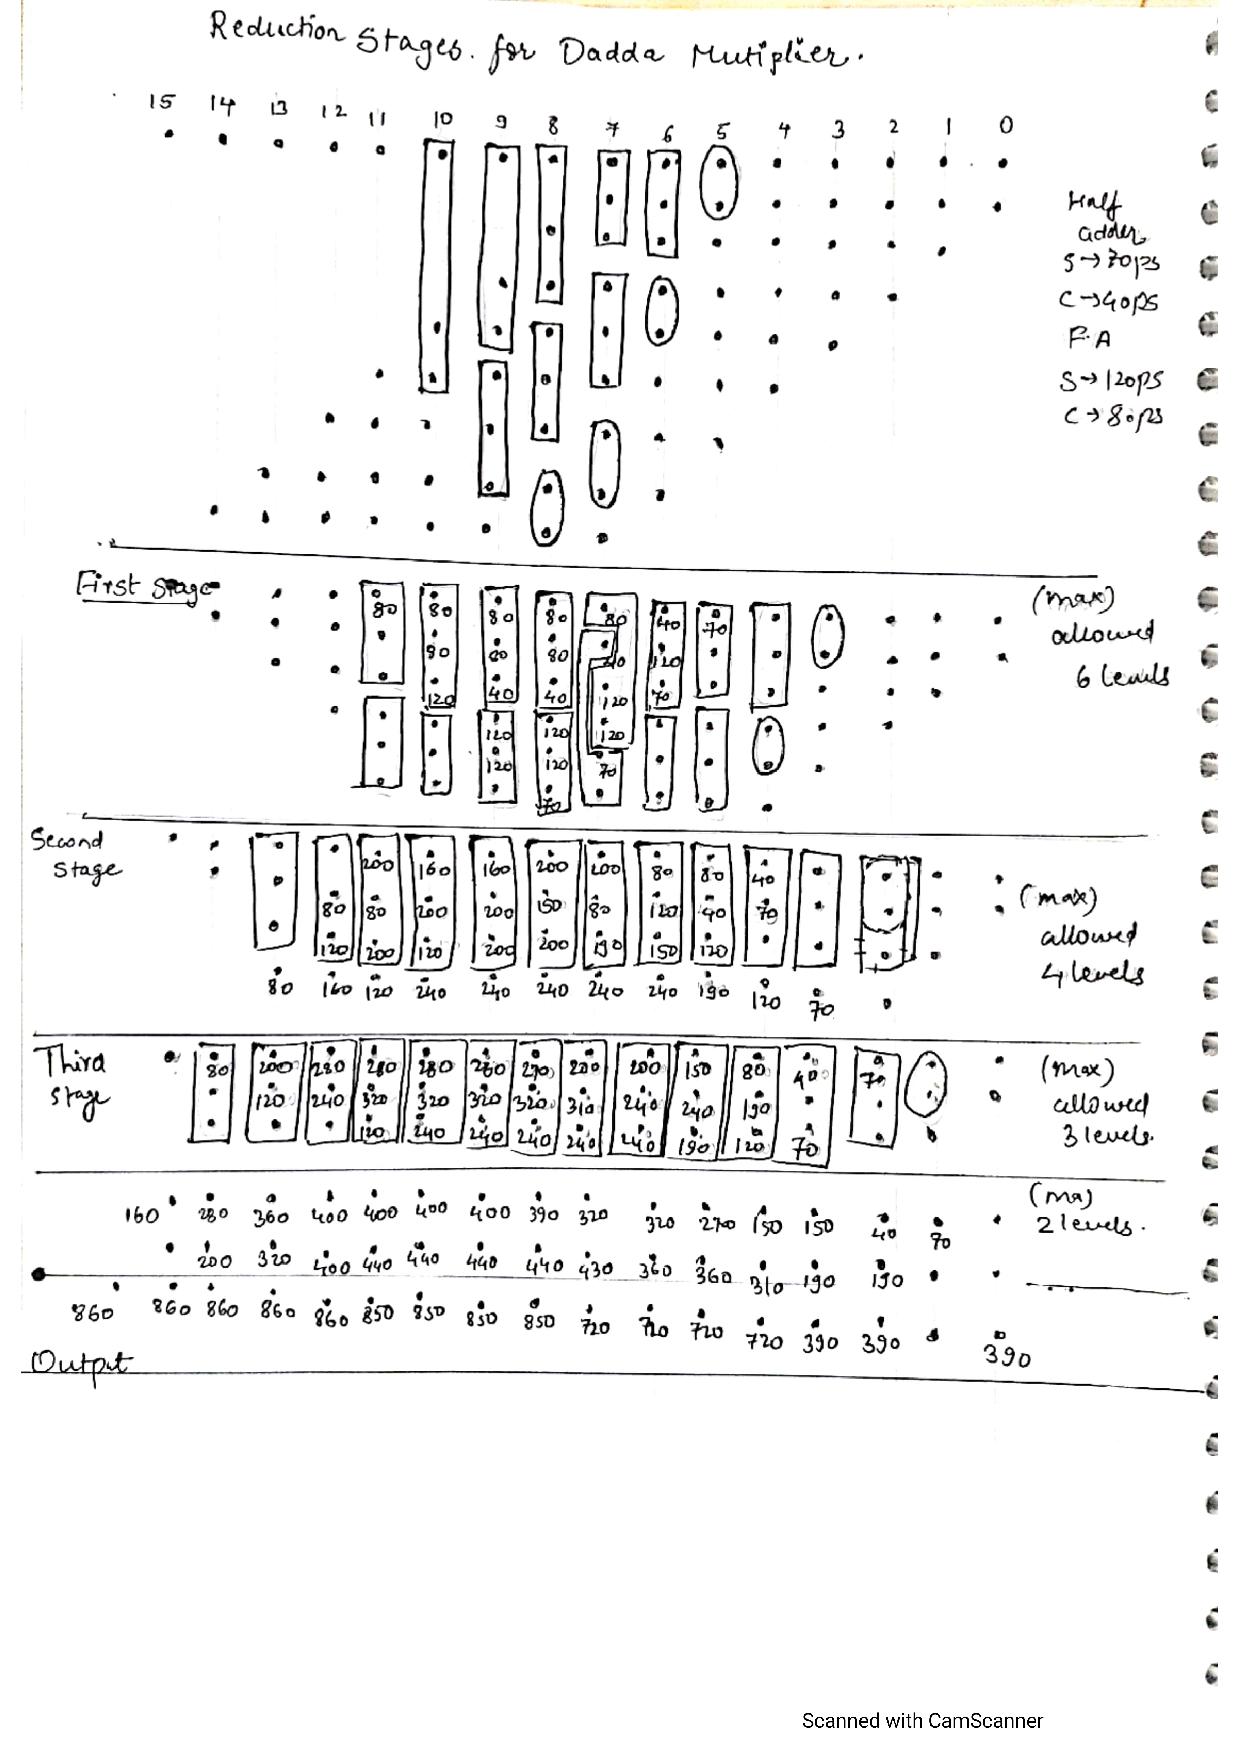 Reduction Stages. for Dadda Mutiplier.
15 14 13 12 11 10 9 8 7 6 5 4 3 2 1 0
Half
adder
S→70ps
C→40ps
F.A
S→120ps
C→80ps
First Stage
(max)
allowed
6 levels
80 80 80 80 80 40 70
80 80 80 40 120
120 40 40 120 70
120 120 120
120 120 70
70
Second
Stage
(max)
allowed
4 levels
200 160 160 200 200 80 80 40
80 80 200 200 150 80 120 40 70
120 200 120 200 200 190 150 120
80 160 120 240 240 240 240 240 190 120 70
Third
Stage
(max)
allowed
3 levels.
80 200 280 280 280 280 270 200 200 150 80 40 70
120 240 320 320 320 320 310 240 240 190
120 240 240 240 240 240 190 120 70
(ma)
2 levels.
160 280 360 400 400 400 400 390 320 320 270 150 150 40 70
200 320 400 440 440 440 440 430 360 360 310 190 190
860 860 860 860 860 850 850 850 850 720 720 720 720 390 390 390
Output
Scanned with CamScanner